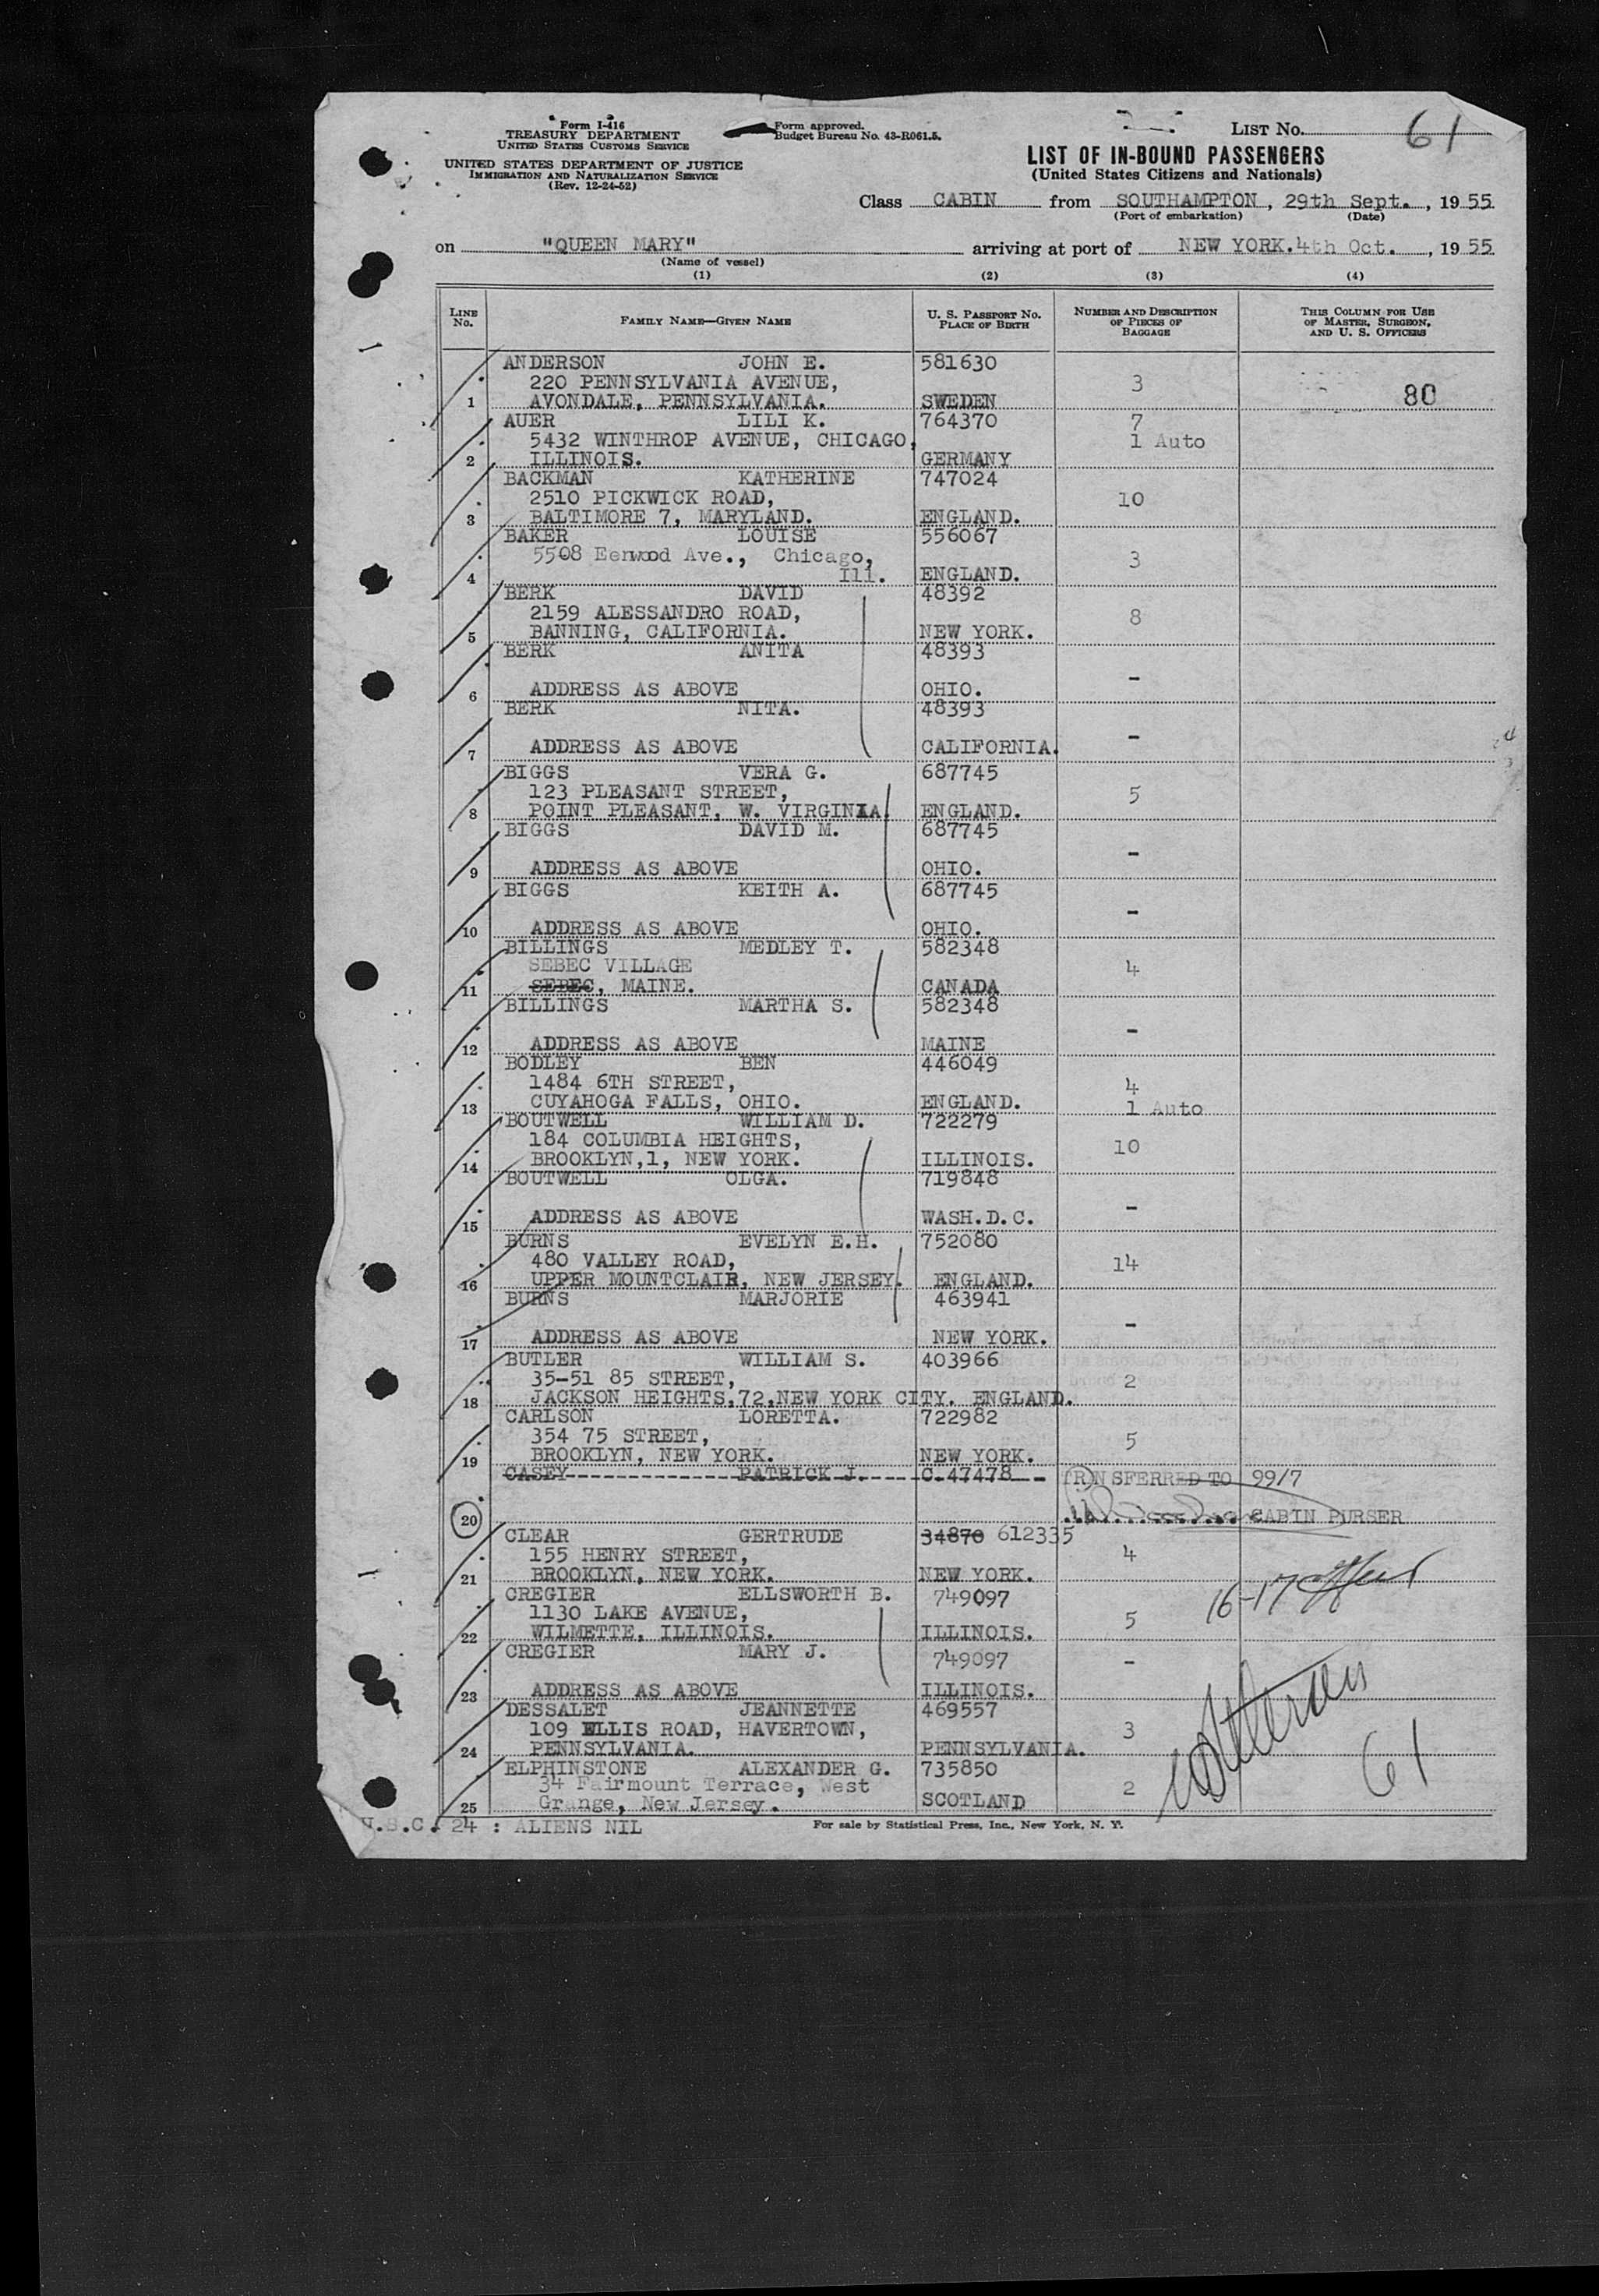 Form I-416
TREASURY DEPARTMENT
UNITED STATES CUSTOMS SERVICE
UNITED STATES DEPARTMENT OF JUSTICE
IMMIGRATION AND NATURALIZATION SERVICE
(Rev. 12-24-52)
Form approved.
Budget Bureau No. 43-R061.5.
LIST No. 61
LIST OF IN-BOUND PASSENGERS
(United States Citizens and Nationals)
Class CABIN from SOUTHAMPTON, 29th Sept., 1955
(Port of embarkation) (Date)
on "QUEEN MARY" arriving at port of NEW YORK. 4th Oct., 1955
(Name of vessel)
(1) (2) (3) (4)
LINE No. FAMILY NAME—GIVEN NAME U. S. PASSPORT No. PLACE OF BIRTH NUMBER AND DESCRIPTION OF PIECES OF BAGGAGE THIS COLUMN FOR USE OF MASTER, SURGEON, AND U. S. OFFICERS
ANDERSON JOHN E. 581630
220 PENNSYLVANIA AVENUE, 3 80
1 AVONDALE, PENNSYLVANIA. SWEDEN
AUER LILI K. 764370 7
5432 WINTHROP AVENUE, CHICAGO, 1 Auto
2 ILLINOIS. GERMANY
BACKMAN KATHERINE 747024
2510 PICKWICK ROAD, 10
3 BALTIMORE 7, MARYLAND. ENGLAND.
BAKER LOUISE 556067
5508 Eenwood Ave., Chicago, 3
4 Ill. ENGLAND.
BERK DAVID 48392
2159 ALESSANDRO ROAD, 8
5 BANNING, CALIFORNIA. NEW YORK.
BERK ANITA 48393
-
6 ADDRESS AS ABOVE OHIO.
BERK NITA. 48393
-
7 ADDRESS AS ABOVE CALIFORNIA.
BIGGS VERA G. 687745
123 PLEASANT STREET, 5
8 POINT PLEASANT, W. VIRGINIA. ENGLAND.
BIGGS DAVID M. 687745
-
9 ADDRESS AS ABOVE OHIO.
BIGGS KEITH A. 687745
-
10 ADDRESS AS ABOVE OHIO.
BILLINGS MEDLEY T. 582348
SEBEC VILLAGE 4
11 SEBEC, MAINE. CANADA
BILLINGS MARTHA S. 582348
-
12 ADDRESS AS ABOVE MAINE
BODLEY BEN 446049
1484 6TH STREET, 4
13 CUYAHOGA FALLS, OHIO. ENGLAND. 1 Auto
BOUTWELL WILLIAM D. 722279
184 COLUMBIA HEIGHTS, 10
14 BROOKLYN,1, NEW YORK. ILLINOIS.
BOUTWELL OLGA. 719848
-
15 ADDRESS AS ABOVE WASH.D.C.
BURNS EVELYN E.H. 752080
480 VALLEY ROAD, 14
16 UPPER MOUNTCLAIR, NEW JERSEY. ENGLAND.
BURNS MARJORIE 463941
-
17 ADDRESS AS ABOVE NEW YORK.
BUTLER WILLIAM S. 403966
35-51 85 STREET, 2
18 JACKSON HEIGHTS,72,NEW YORK CITY. ENGLAND.
CARLSON LORETTA. 722982
354 75 STREET, 5
19 BROOKLYN, NEW YORK. NEW YORK.
CASEY PATRICK J. C.47478 TRNSFERRED TO 99/7
20 CABIN PURSER
CLEAR GERTRUDE 34870 612335
155 HENRY STREET, 4
21 BROOKLYN, NEW YORK. NEW YORK.
CREGIER ELLSWORTH B. 749097 16-17
1130 LAKE AVENUE, 5
22 WILMETTE, ILLINOIS. ILLINOIS.
CREGIER MARY J. 749097
-
23 ADDRESS AS ABOVE ILLINOIS.
DESSALET JEANNETTE 469557
109 ELLIS ROAD, HAVERTOWN, 3
24 PENNSYLVANIA. PENNSYLVANIA.
ELPHINSTONE ALEXANDER G. 735850 61
34 Fairmount Terrace, West 2
25 Grange, New Jersey. SCOTLAND
U.S.C. 24 : ALIENS NIL For sale by Statistical Press, Inc., New York, N. Y.